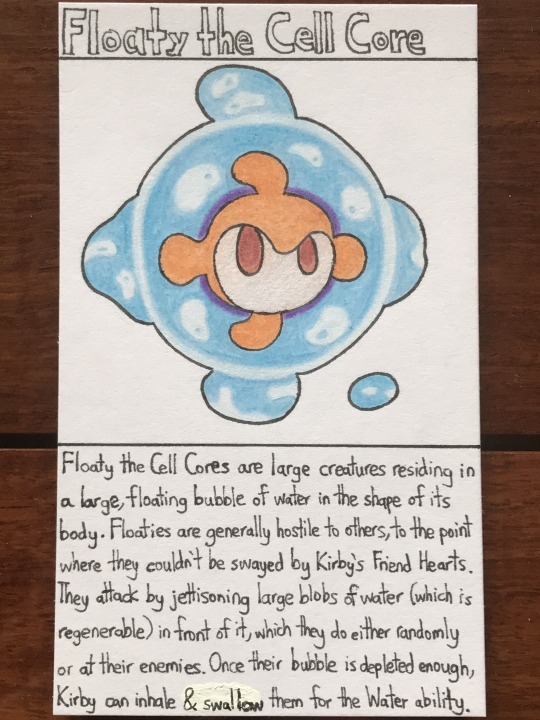 Floaty the Cell Core
Floaty the Cell Cores are large creatures residing in
a large, floating bubble of water in the shape of its
body. Floaties are generally hostile to others, to the point
where they couldn't be swayed by Kirby's Friend Hearts.
They attack by jettisoning large blobs of water (which is
regenerable) in front of it, which they do either randomly
or at their enemies. Once their bubble is depleted enough,
Kirby can inhale & swallow them for the Water ability.